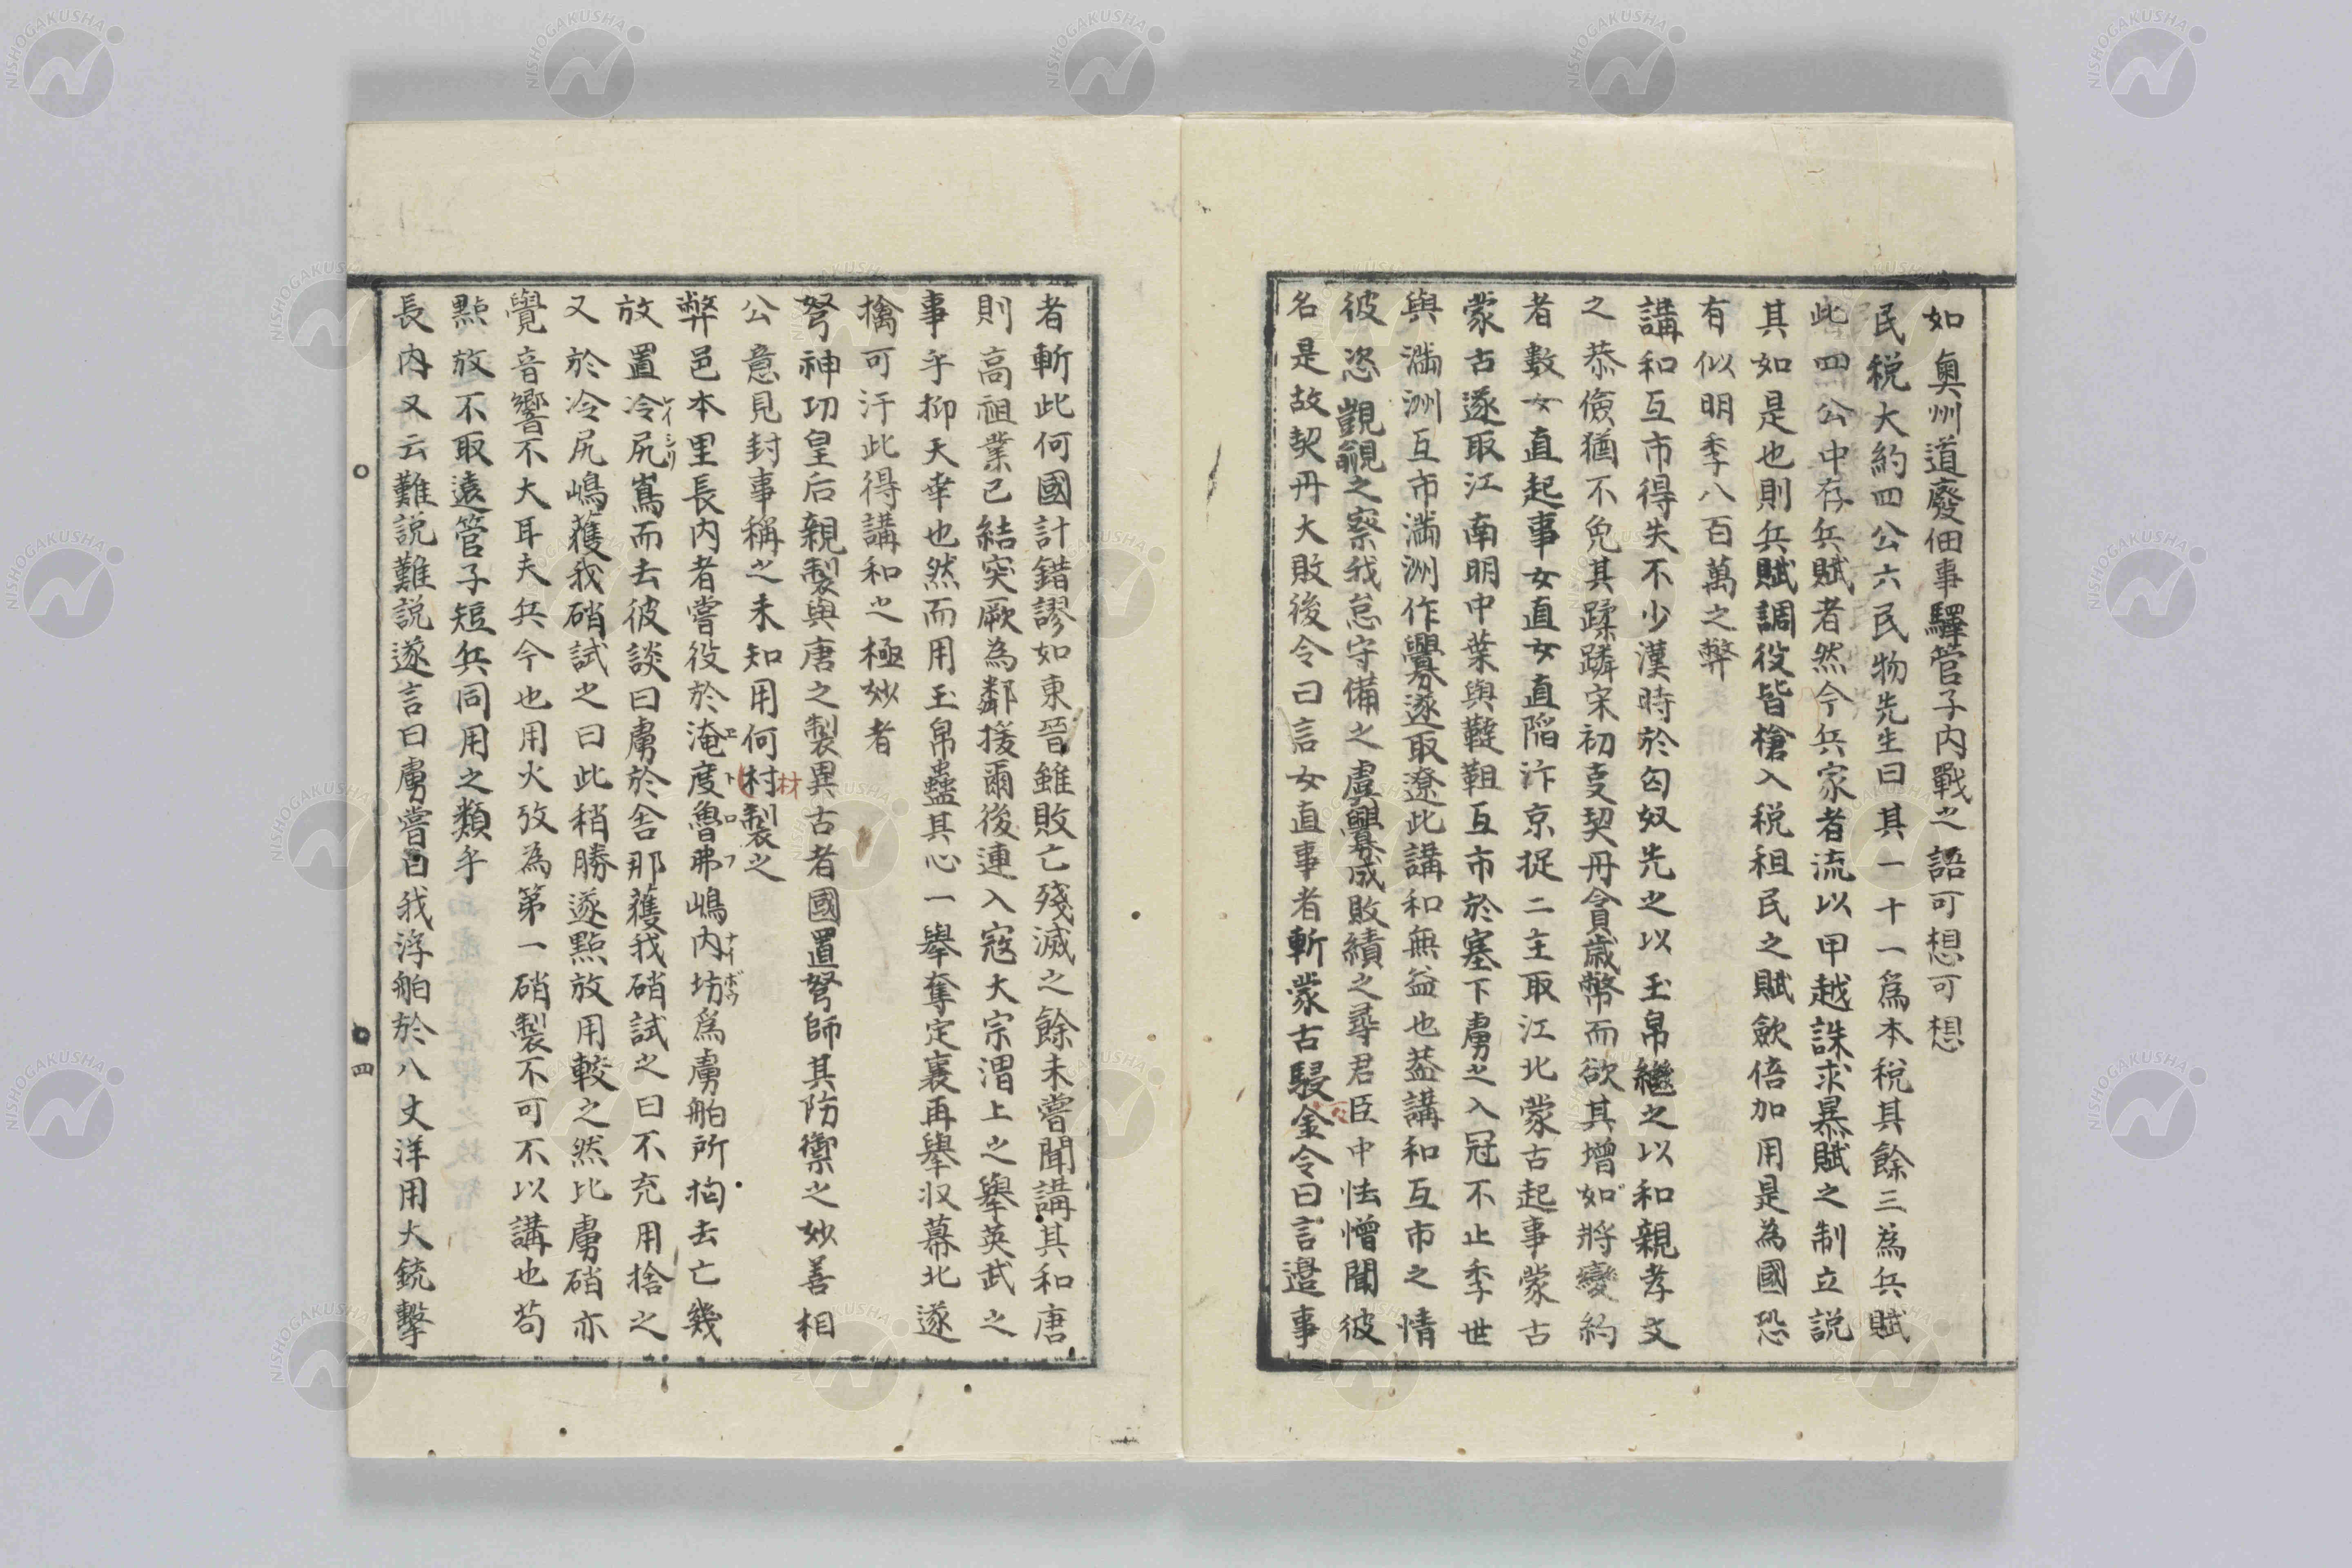 如奧州道廢佃事驛管子內戰之語可想可想
民税大約四公六民物先生曰其一十一爲本税其餘三為兵賦
此四公中存兵賦者然今兵家者流以甲越誅求暴賦之制立説
其如是也則兵賦調役皆槍入税租民之賦歛倍加用是為國恐
有似明季八百萬之弊
講和互市得失不少漢時於匈奴先之以玉帛繼之以和親孝文
之恭儉猶不免其蹂躪宋初支契丹貪歳幣而欲其增如將變約
者數女直起事女直女直陷汴京捉二主取江北蒙古起事蒙古
蒙古遂取江南明中葉與韃靼互市於塞下虜之入冦不止季世
與滿洲互市滿洲作釁遂取遼此講和無益也葢講和互市之情
彼恣覬覦之察我怠守備之虞釁成敗績之尋君臣中怯憎聞彼
名是故契丹大敗後令曰言女直事者斬蒙古駸金令曰言邉事
者斬此何國計錯謬如東晉雖敗亡殘滅之餘未嘗聞講其和唐
則高祖業已結突厥為鄰援爾後連入寇大宗渭上之舉英武之
事乎抑天幸也然而用玉帛蠱其心一舉奪定襄再舉収幕北遂
擒可汗此得講和之極妙者
弩神功皇后親製與唐之製異古者國置弩師其防禦之妙善相
公意見封事稱之未知用何村製之
材
弊邑本里長內者嘗役於淹度魯弗嶋內坊爲虜舶所拘去亡幾
エトロフ ナイボウ
放置冷尻嶌而去彼談曰虜於舎那蘿我硝試之曰不充用捨之
レイシリ
又於冷尻嶋蘿我硝試之曰此稍勝遂點放用較之然比虜硝亦
覺音響不大耳夫兵今也用火攻為第一硝製不可不以講也苟
點放不取遠管子短兵同用之類乎
長內又云難説難説遂言曰虜嘗曰我浮舶於八丈洋用大銃擊
四
NISHOGAKUSHA